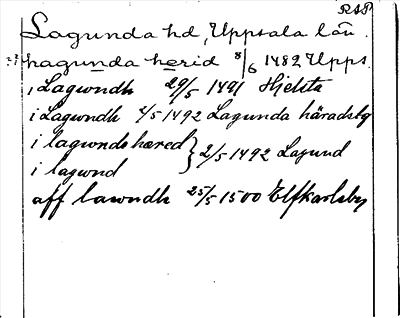 RAP
Lagunda hd, Uppsala län.
hagunda herid 8/6 1482 Upps.
i Lagwndh 29/5 1491 Hjelsta
i Lagwndh 2/5 1492 Lagunda häradsbg
i lagwnds hæred } 2/5 1492 Lagund
i lagwnd
aff lawndh 25/5 1500 Elfkarleby